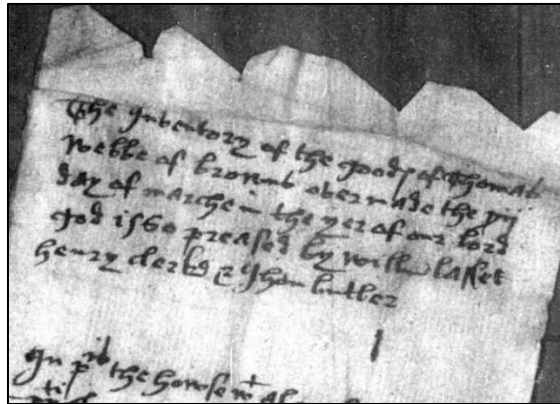 The Inventory of the goods of Thomas
webbe of bromb made the xij
day of marche in the yer of our lord
god 1560 preased by willm basket
henry clerke & Jhon butler
In the howse